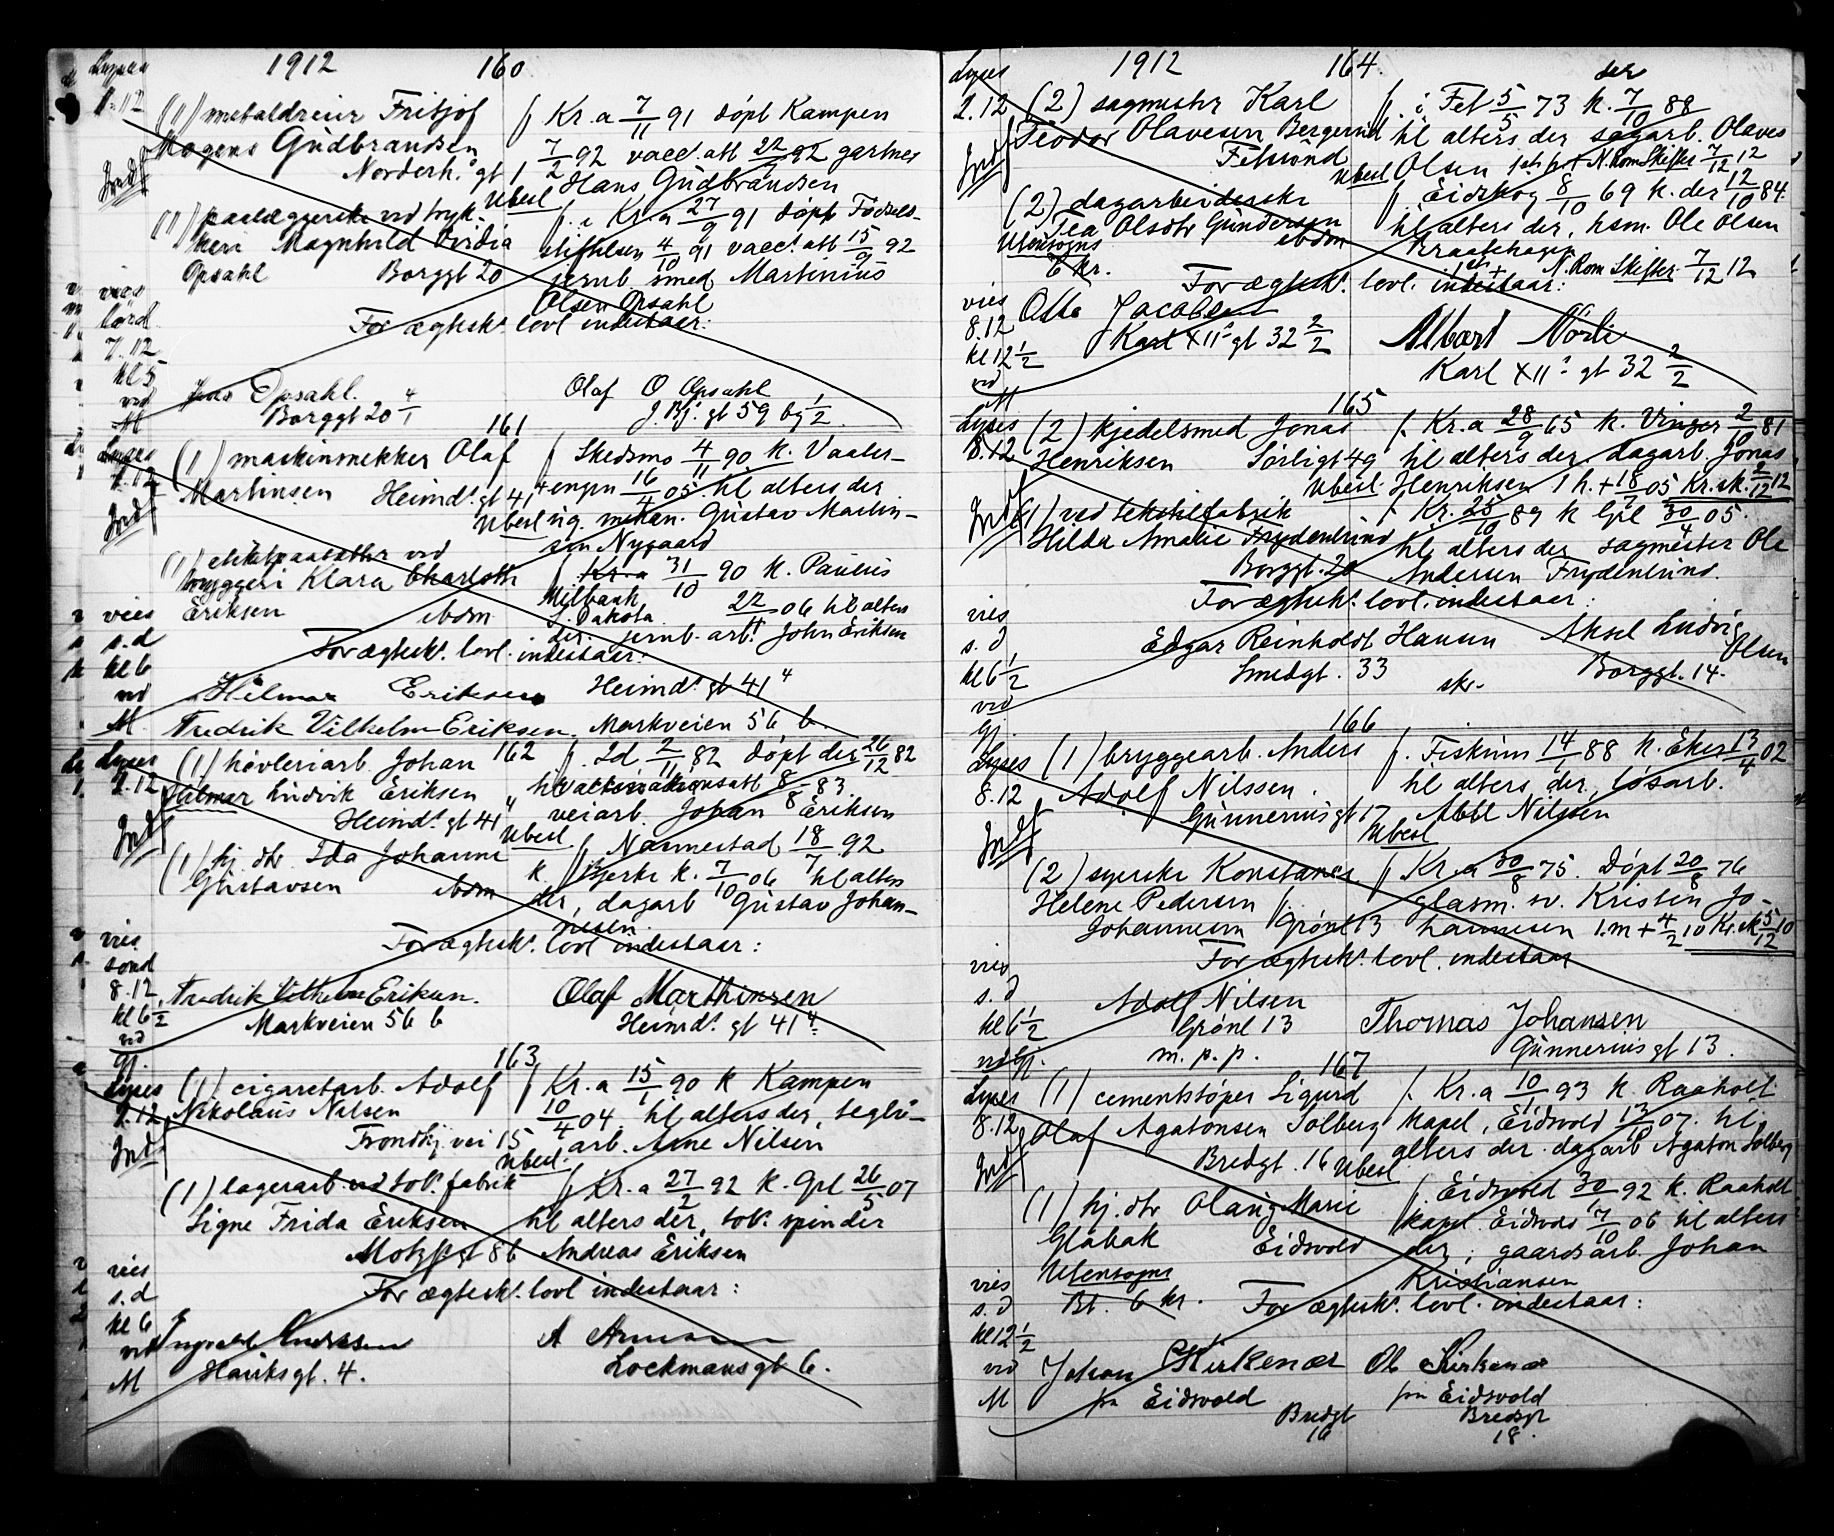 1912 160
Lyses
1.12 (1) metaldreier Fritjof f Kr.a 7/11 91 døpt Kampen
Mogens Gudbrandsen 7/2 92 vacc. att 22/9 92 gartner
Indf Norderh.s gt 1 Hans Gudbrandsen
Ubesl
(1) paalæggerske ved tryk- f. i Kr.a 27/9 91 døpt Fødsels-
keri Magnhild Ovidia stiftelsen 4/10 91 vacc. att 15/9 92
Opsahl Borggt 20 jernb. smed Martinius
vies Olsen Opsahl
lørd For ægtesk. lovl indestaar:
7.12
kl 5
vd Jens Opsahl. Olaf O Opsahl
M Borggt 20 4/1 J. Bj. gt 59 bg 1/2
161
Lyses (1) maskinsnekker Olaf f Skedsmo 4/11 90 k. Vaaler-
1.12 Martinsen Heimd.s gt 41 4 engen 16/4 05. hl alters der
Indf Ubesl sig. mekan. Gustav Martin-
sen Nygaard
(1) etiketpaasætter ved f. Kr.a 31/10 90 k. Paulus
bryggeri Klara Charlotte Milbank
vies Eriksen ibdm S. Dakota 22/11 06 hl alters
s.d der. jernb. arb. John Eriksen
kl 6 For ægtesk. lovl. indestaar:
vd Hilmar Eriksen Heimd.s gt 41 4
M Fredrik Vilhelm Eriksen. Markveien 56 b
162
Lyses (1) høvleriarb. Johan f. Id 2/11 82 døpt der 26/12 82
1.12 Hilmar Ludvik Eriksen hl vaccinationsatt 8/8 83.
Heimd.s gt 41 4 veiarb. Johan Eriksen
Indf Ubesl
(1) hj. dtr. Ida Johanne f Nannestad 18/7 92
Gustavsen ibdm k. Bjerke k. 7/10 06 hl alters
der, dagarb Gustav Johan-
nesen.
vies For ægtesk. lovl indestaar:
sønd
8.12 Fredrik Vilhelm Eriksen. Olaf Marthinsen
kl 6 1/2 Markveien 56 b Heimd.s gt 41 4
vd
Gj. 163
Lyses (1) cigaretarb. Adolf f Kr.a 15/1 90 k Kampen
1.12 Nikolaus Nilsen 10/4 04. hl alters der, teglv-
Indf Trondhj. vei 15 arb. Arne Nilsen
Ubesl.
(1) lagerarb. ved tob. fabrik f Kr.a 27/2 92 k. Grl 26/5 07
Signe Frida Eriksen hl alters der, tob. spinder
Motzfgt 8 b Andreas Eriksen
vies For ægtesk. lovl indestaar:
s.d
kl 6
vd Ingvald Andersen A
M Hauksgt. 4. Lockmansgt 6.

Lyses 1912 164
2.12 (2) sagmester Karl f. i Fet 5/5 73 k. der 7/10 88
Teodor Olavesen Bergerud hl alters der sagarb. Olaves
Indf Fetsund Ubesl Olsen 1 et. h + N. Rom Skifter 7/12 12
(2) dagarbeiderske f. Eidskog 8/10 69 k. der 12/10 84.
Tea Olsdtr Gundersen ibdm hl alters der, hsm. Ole Olsen
Utensogns Kraatehagen
6 kr. 1 et. + N. Rom Skifter 7/12 12
For ægtesk. lovl. indestaar:
vies Otto Jacobsen
8.12 Karl XII.s gt 32 2/2 Albert Nørli
kl 12 1/2 Karl XII.s gt 32 2/2
vd
M 165
Lyses (2) kjedelsmed Jonas f. Kr.a 28/9 65 k. Vinger 2/10 81
8.12 Henriksen Sørligt 49 hl alters der, dagarb. Jonas
Ubesl Henriksen 1 h. + 18/7 05 Kr. sk. 2/12 12
Indf (1) ved tekstilfabrik f Kr. 25/10 89 k Grl 30/4 05.
Hilda Amalie Frydenlund hl alters der sagmester Ole
Borggt. 20 Andersen Frydenlund.
For ægtesk. lovl. indestaar:
vies
s.d Edgar Reinholdt Hansen Aksel Ludvig
kl 6 1/2 Smedgt. 33 Olsen
vd skr. Borggt. 14.
Gj. 166
Lyses (1) bryggearb. Anders f. Fiskum 14/1 88 k. Eker 13/4 02
8.12 Adolf Nilssen. hl alters der, løsarb.
Gunnerusgt 17 Abbl Nilssen
Indf Ubesl
(2) syerske Konstance f Kr.a 30/8 75. døpt 20/8 76
Helene Pedersen f. glasm. sv. Kristen Jo-
Johannesen Grønl 13 hannesen 1. m + 4/2 10 Kr. sk 5/12 10
vies For ægtesk. lovl. indestaar
s.d Adolf Nilsen
kl 6 1/2 Grønl 13 Thomas Johansen
vd Gj. m. p. p. Gunnerusgt 13.
167
Lyses (1) cementstøper Sigurd f. Kr.a 10/1 93 k. Raaholt
8.12 Olaf Agatonsen Solberg kapel, Eidsvold 13/10 07. hl
Indf Bredgt. 16 Ubesl alters der. dagarb Agaton Solberg
(1) hj. dtr Olaug Marie f. Eidsvold 30/1 92 k. Raaholt
Glabak Eidsvold kapel Eidsvold 7/10 06 hl alters
der; gaardsarb. Johan
Utensogns Kristiansen
vies Bt. 6 kr. For ægtesk. lovl. indestaar:
s.d
kl 12 1/2
vd Johan Kirkenær Ole Kirkenær
M fra Eidsvold fra Eidsvold
Bredgt Bredgt
16 18.